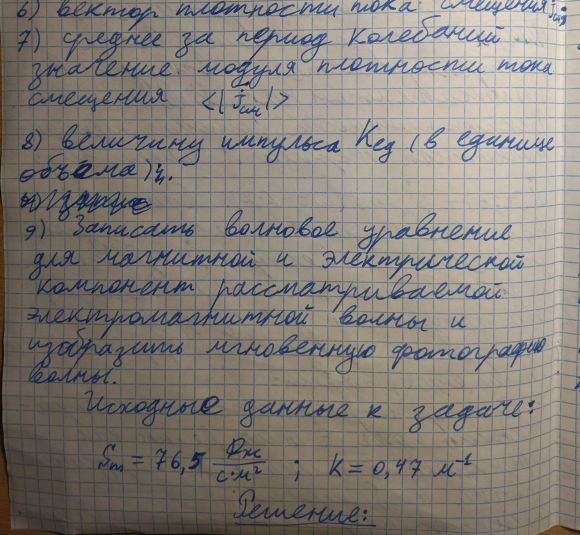 6) вектор плотности тока смещения jсм
7) среднее за период колебаний
значение модуля плотности тока
смещения <|jсм|>
8) величину импульса Kед (в единице
объёма);
9) Записать волновое уравнение
для магнитной и электрической
компонент рассматриваемой
электромагнитной волны и
изобразить мгновенную фотографию
волны.
Исходные данные к задаче:
Sm = 76,5 Дж/с·м² ; k = 0,47 м⁻¹
Решение: